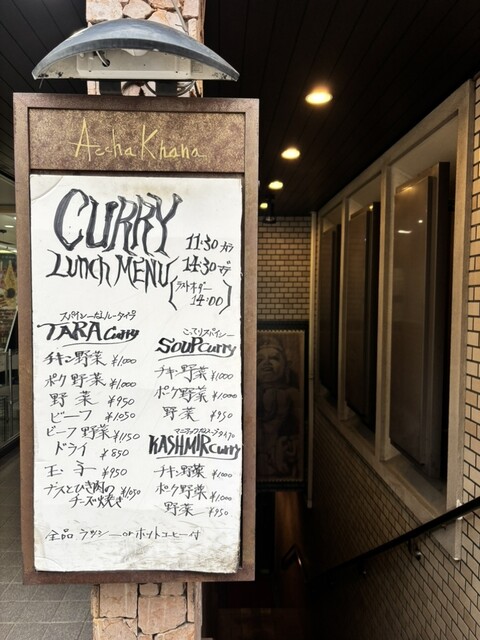 Accha Khana
CURRY
Lunch MENU
11:30から
14:30マデ
(ラストオーダー
14:00)
TARA Curry
チキン野菜 ¥1000
ポーク野菜 ¥1000
野菜 ¥950
ビーフ ¥1050
ビーフ野菜 ¥1150
ドライ ¥850
¥950
ナスとひき肉の
チーズ焼き ¥1050
SOUP Curry
チキン野菜 ¥1000
ポーク野菜 ¥1000
野菜 ¥950
KASHMIR Curry
チキン野菜 ¥1000
ポーク野菜 ¥1000
野菜 ¥950
全品 ラッシー or ホットコーヒー付